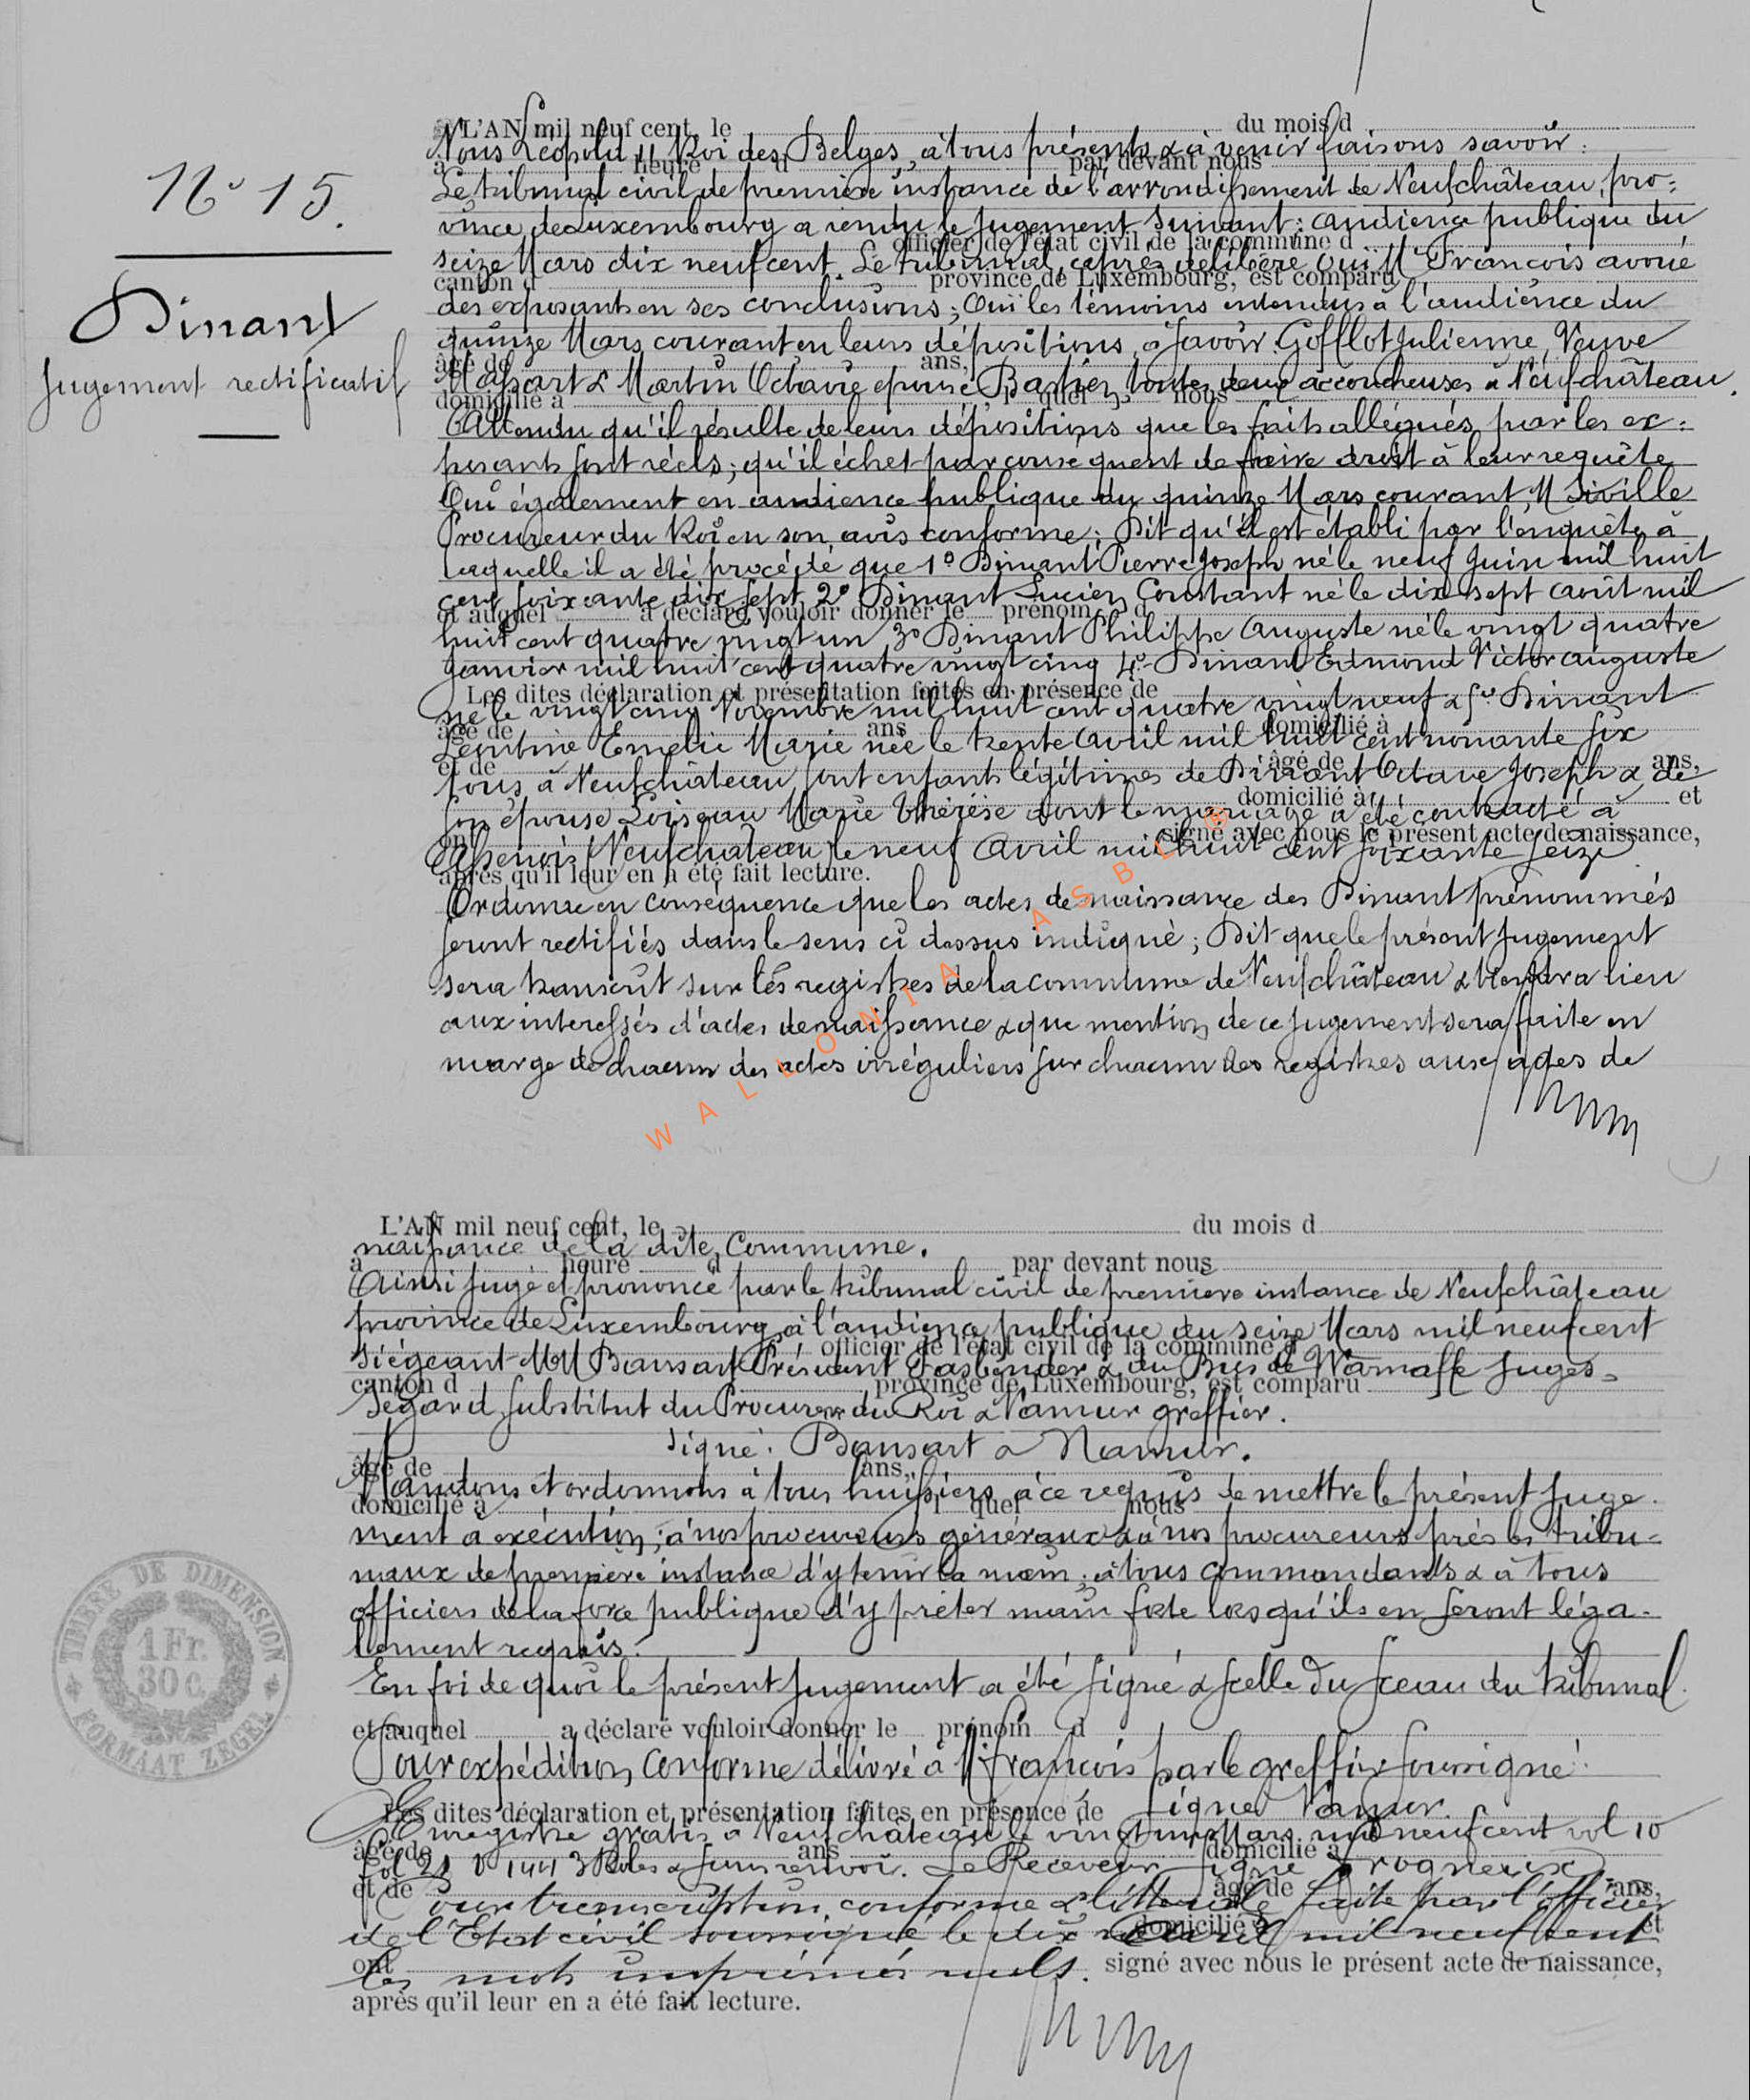 N° 15.
Dinant
Jugement rectificatif
L'AN mil neuf cent, le du mois d
Nous Léopold II Roi des Belges, à tous présents & à venir faisons savoir :
à heure d par devant nous
Le tribunal civil de première instance de l'arrondissement de Neufchâteau, pro=
vince de Luxembourg a rendu le jugement suivant : audience publique du
officier de l'état civil de la commune d
seize Mars dix neuf cent. Le tribunal, après délibéré Ouï Me François avoué
canton d province de Luxembourg, est comparu
des exposants en ses conclusions ; Ouï les témoins entendus à l'audience du
quinze Mars courant en leurs dépositions, à savoir Gofflot Julienne, Veuve
âgé de ans,
Massart & Martin Octavie épouse Bastien toutes deux accoucheuses à Neufchâteau.
domicilié à l quel nous
Attendu qu'il résulte de leurs dépositions que les faits allégués par les ex=
posants sont réels ; qu'il échet par conséquent de faire droit à leur requête
Ouï également en audience publique du quinze Mars courant, M Siville
Procureur du Roi en son avis conforme ; Dit qu'il est établi par l'enquête à
laquelle il a été procédé que 1° Dinant Pierre Joseph né le neuf Juin mil huit
cent soixante dix sept 2° Dinant Lucien Constant né le dix sept août mil
et auquel a déclaré vouloir donner le prénom d
huit cent quatre vingt un 3° Dinant Philippe Auguste né le vingt quatre
Janvier mil huit cent quatre vingt cinq 4° Dinant Edmond Victor Auguste
Les dites déclaration et présentation faites en présence de
né le vingt cinq Novembre mil huit cent quatre vingt neuf & 5° Dinant
âgé de ans domicilié à
Léontine Emélie Marie née le trente avril mil huit cent nonante six
et de âgé de ans,
tous à Neufchâteau, sont enfants légitimes de Dinant Octave Joseph & de
domicilié à et
son épouse Loiseau Marie Thérèse dont le mariage a été contracté à
ont signé avec nous le présent acte de naissance,
Assenois (Neufchâteau) le neuf Avril mil huit cent soixante seize
après qu'il leur en a été fait lecture.
Ordonne en conséquence que les actes de naissance des Dinant prénommés
seront rectifiés dans le sens ci dessus indiqué ; Dit que le présent jugement
sera transcrit sur les registres de la commune de Neufchâteau & tiendra lieu
aux intéressés d'actes de naissance & que mention de ce jugement sera faite en
marge de chacun des actes irréguliers sur chacun des registres aux actes de
WALLONIA ASBL ®
L'AN mil neuf cent, le du mois d
naissance de la dite Commune.
à heure d par devant nous
Ainsi jugé et prononcé par le tribunal civil de première instance de Neufchâteau
province de Luxembourg, à l'audience publique du seize Mars mil neuf cent
officier de l'état civil de la commune d
Siégeant MM Bansart Président Fasbender & du Bus de Warnaffe Juges=
canton d province de Luxembourg, est comparu
Ségard, Substitut du Procureur du Roi & Namur greffier.
Signé : Bansart & Namur.
âgé de ans,
Mandons et ordonnons à tous huissiers à ce requis de mettre le présent juge
domicilié à l quel nous
ment à exécution ; à nos procureurs généraux & à nos procureurs près les tribu=
naux de première instance d'y tenir la main ; à tous commandants & à tous
officiers de la force publique d'y prêter main forte lorsqu'ils en seront léga-
lement requis.
En foi de quoi le présent jugement a été signé & scellé du sceau du tribunal.
et auquel a déclaré vouloir donner le prénom d
Pour expédition conforme délivré à Me François par le greffier soussigné.
Les dites déclaration et présentation faites en présence de Signé Namur.
Enregistré gratis à Neufchâteau le vingt un Mars mil neuf cent vol 10
âgé de ans domicilié à
fol 21 3 Rôles & sans renvoi. Le Receveur signé Frogneux
et de âgé de ans,
Pour transcription conforme & littérale faite par l'officier
domicilié à et
de l'Etat civil soussigné le dix Avril mil neuf cent
ont signé avec nous le présent acte de naissance,
les mots imprimés nuls.
après qu'il leur en a été fait lecture.
TIMBRE DE DIMENSION
1 Fr.
30 C.
FORMAAT ZEGEL